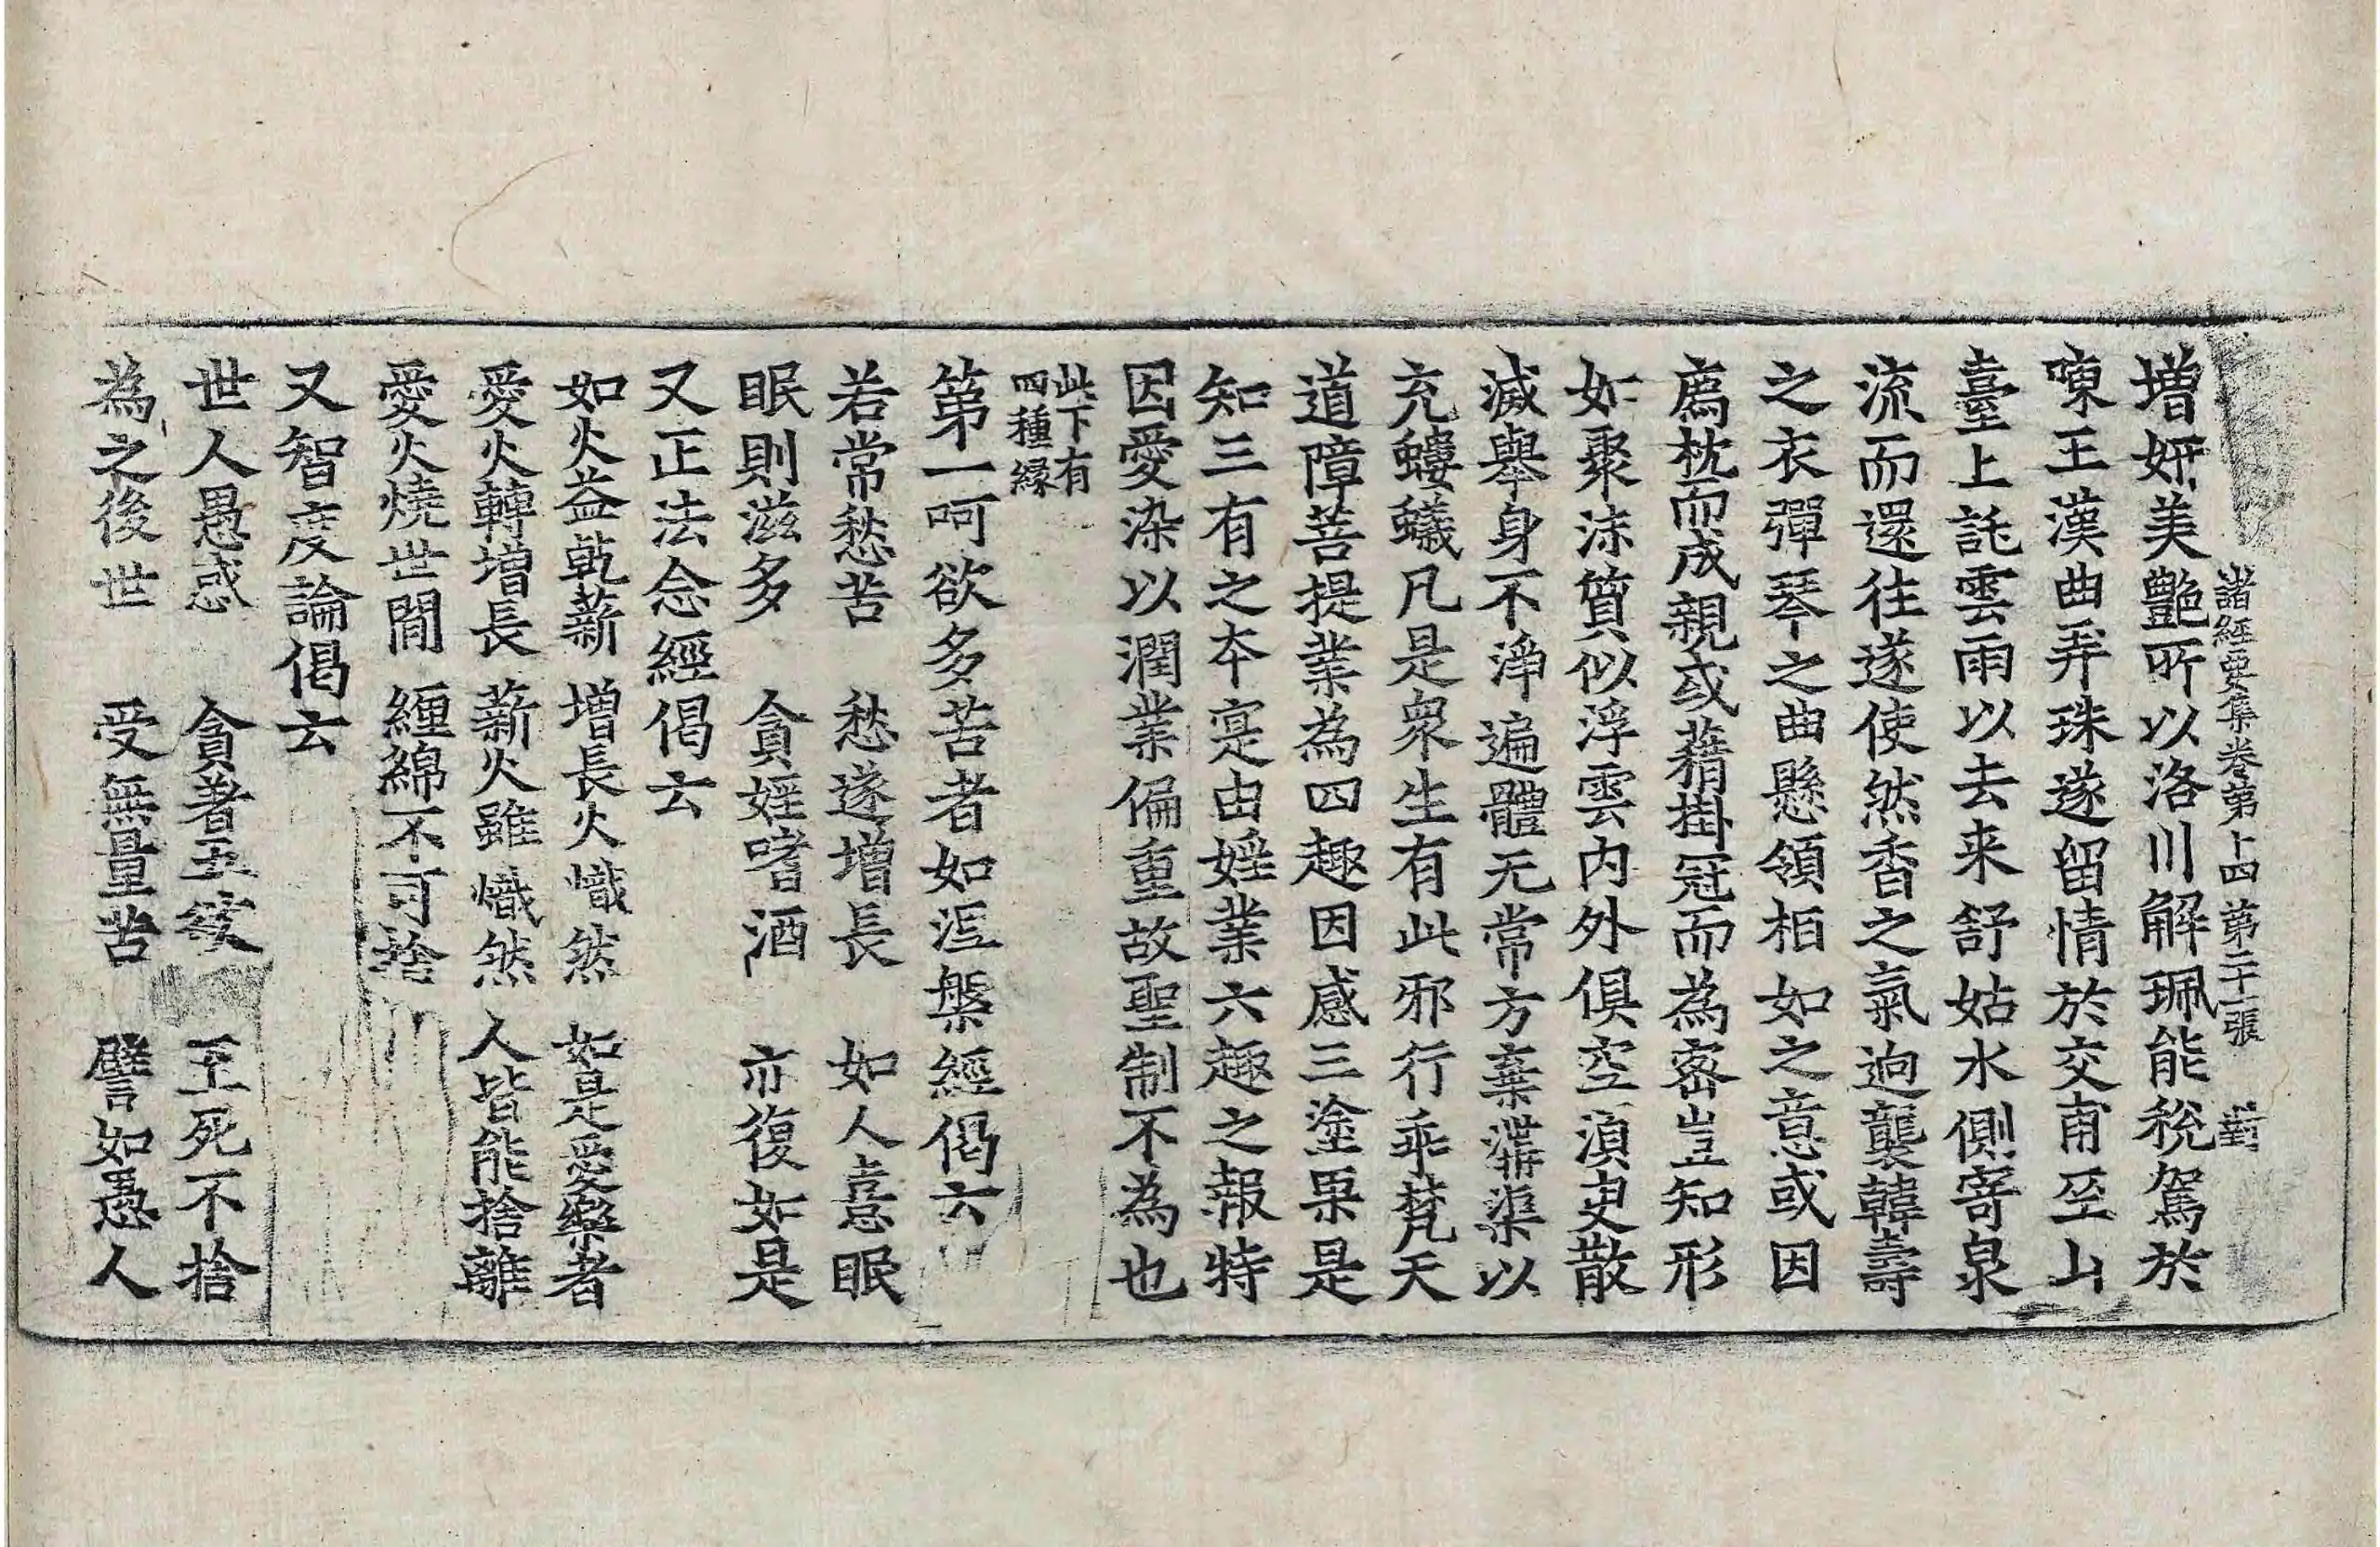 諸經要集卷第十四　第二十一張　對
增妍美艷所以洛川解珮能稅駕於
陳王漢曲弄珠遂留情於交甫至山
臺上託雲雨以去来舒姑水側寄泉
流而還往遂使然香之氣逈襲韓壽
之衣彈琴之曲懸領相如之意或因
薦枕而成親或藉掛冠而為密豈知形
如聚沫質似浮雲內外俱空湏㬰散
滅舉身不淨遍體无常方棄溝渠以
充螻蟻凡是衆生有此邪行乖梵天
道障菩提業為四趣因感三塗果是
知三有之本寔由婬業六趣之報特
因愛染以潤業偏重故聖制不為也
此下有
四種縁
第一呵欲多苦者如涅槃經偈云
若常愁苦　愁遂增長　如人憙眠
眠則滋多　貪婬嗜酒　亦復如是
又正法念經偈云
如火益乹薪　增長火熾然　如是愛樂者
愛火轉增長　薪火雖熾然　人皆能捨離
愛火燒世閒　纏綿不可捨
又智度論偈云
世人愚惑　貪著五欲　至死不捨
為之後世　受無量苦　譬如愚人